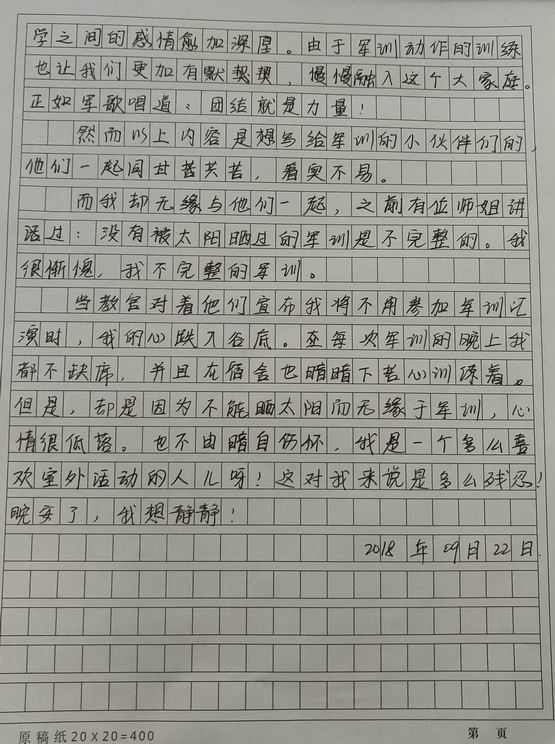 学之间的感情愈加深厚。由于军训动作的训练
也让我们更加有默契，慢慢融入这个大家庭。
正如军歌唱道：团结就是力量！
然而以上内容是想写给军训的小伙伴们的，
他们一起同甘苦共苦，着实不易。
而我却无缘与他们一起，之前有位师姐讲
话过：没有被太阳晒过的军训是不完整的。我
很惭愧，我不完整的军训。
当教官对着他们宣布我将不用参加军训汇
演时，我的心跌入谷底。在每次军训的晚上我
都不缺席，并且在宿舍也暗暗下苦心训练着。
但是，却是因为不能晒太阳而无缘于军训，心
情很低落。也不由暗自伤怀，我是一个多么喜
欢室外活动的人儿呀！这对我来说是多么残忍！
晚安了，我想静静！
2018年09月22日
原稿纸20×20=400
第 页